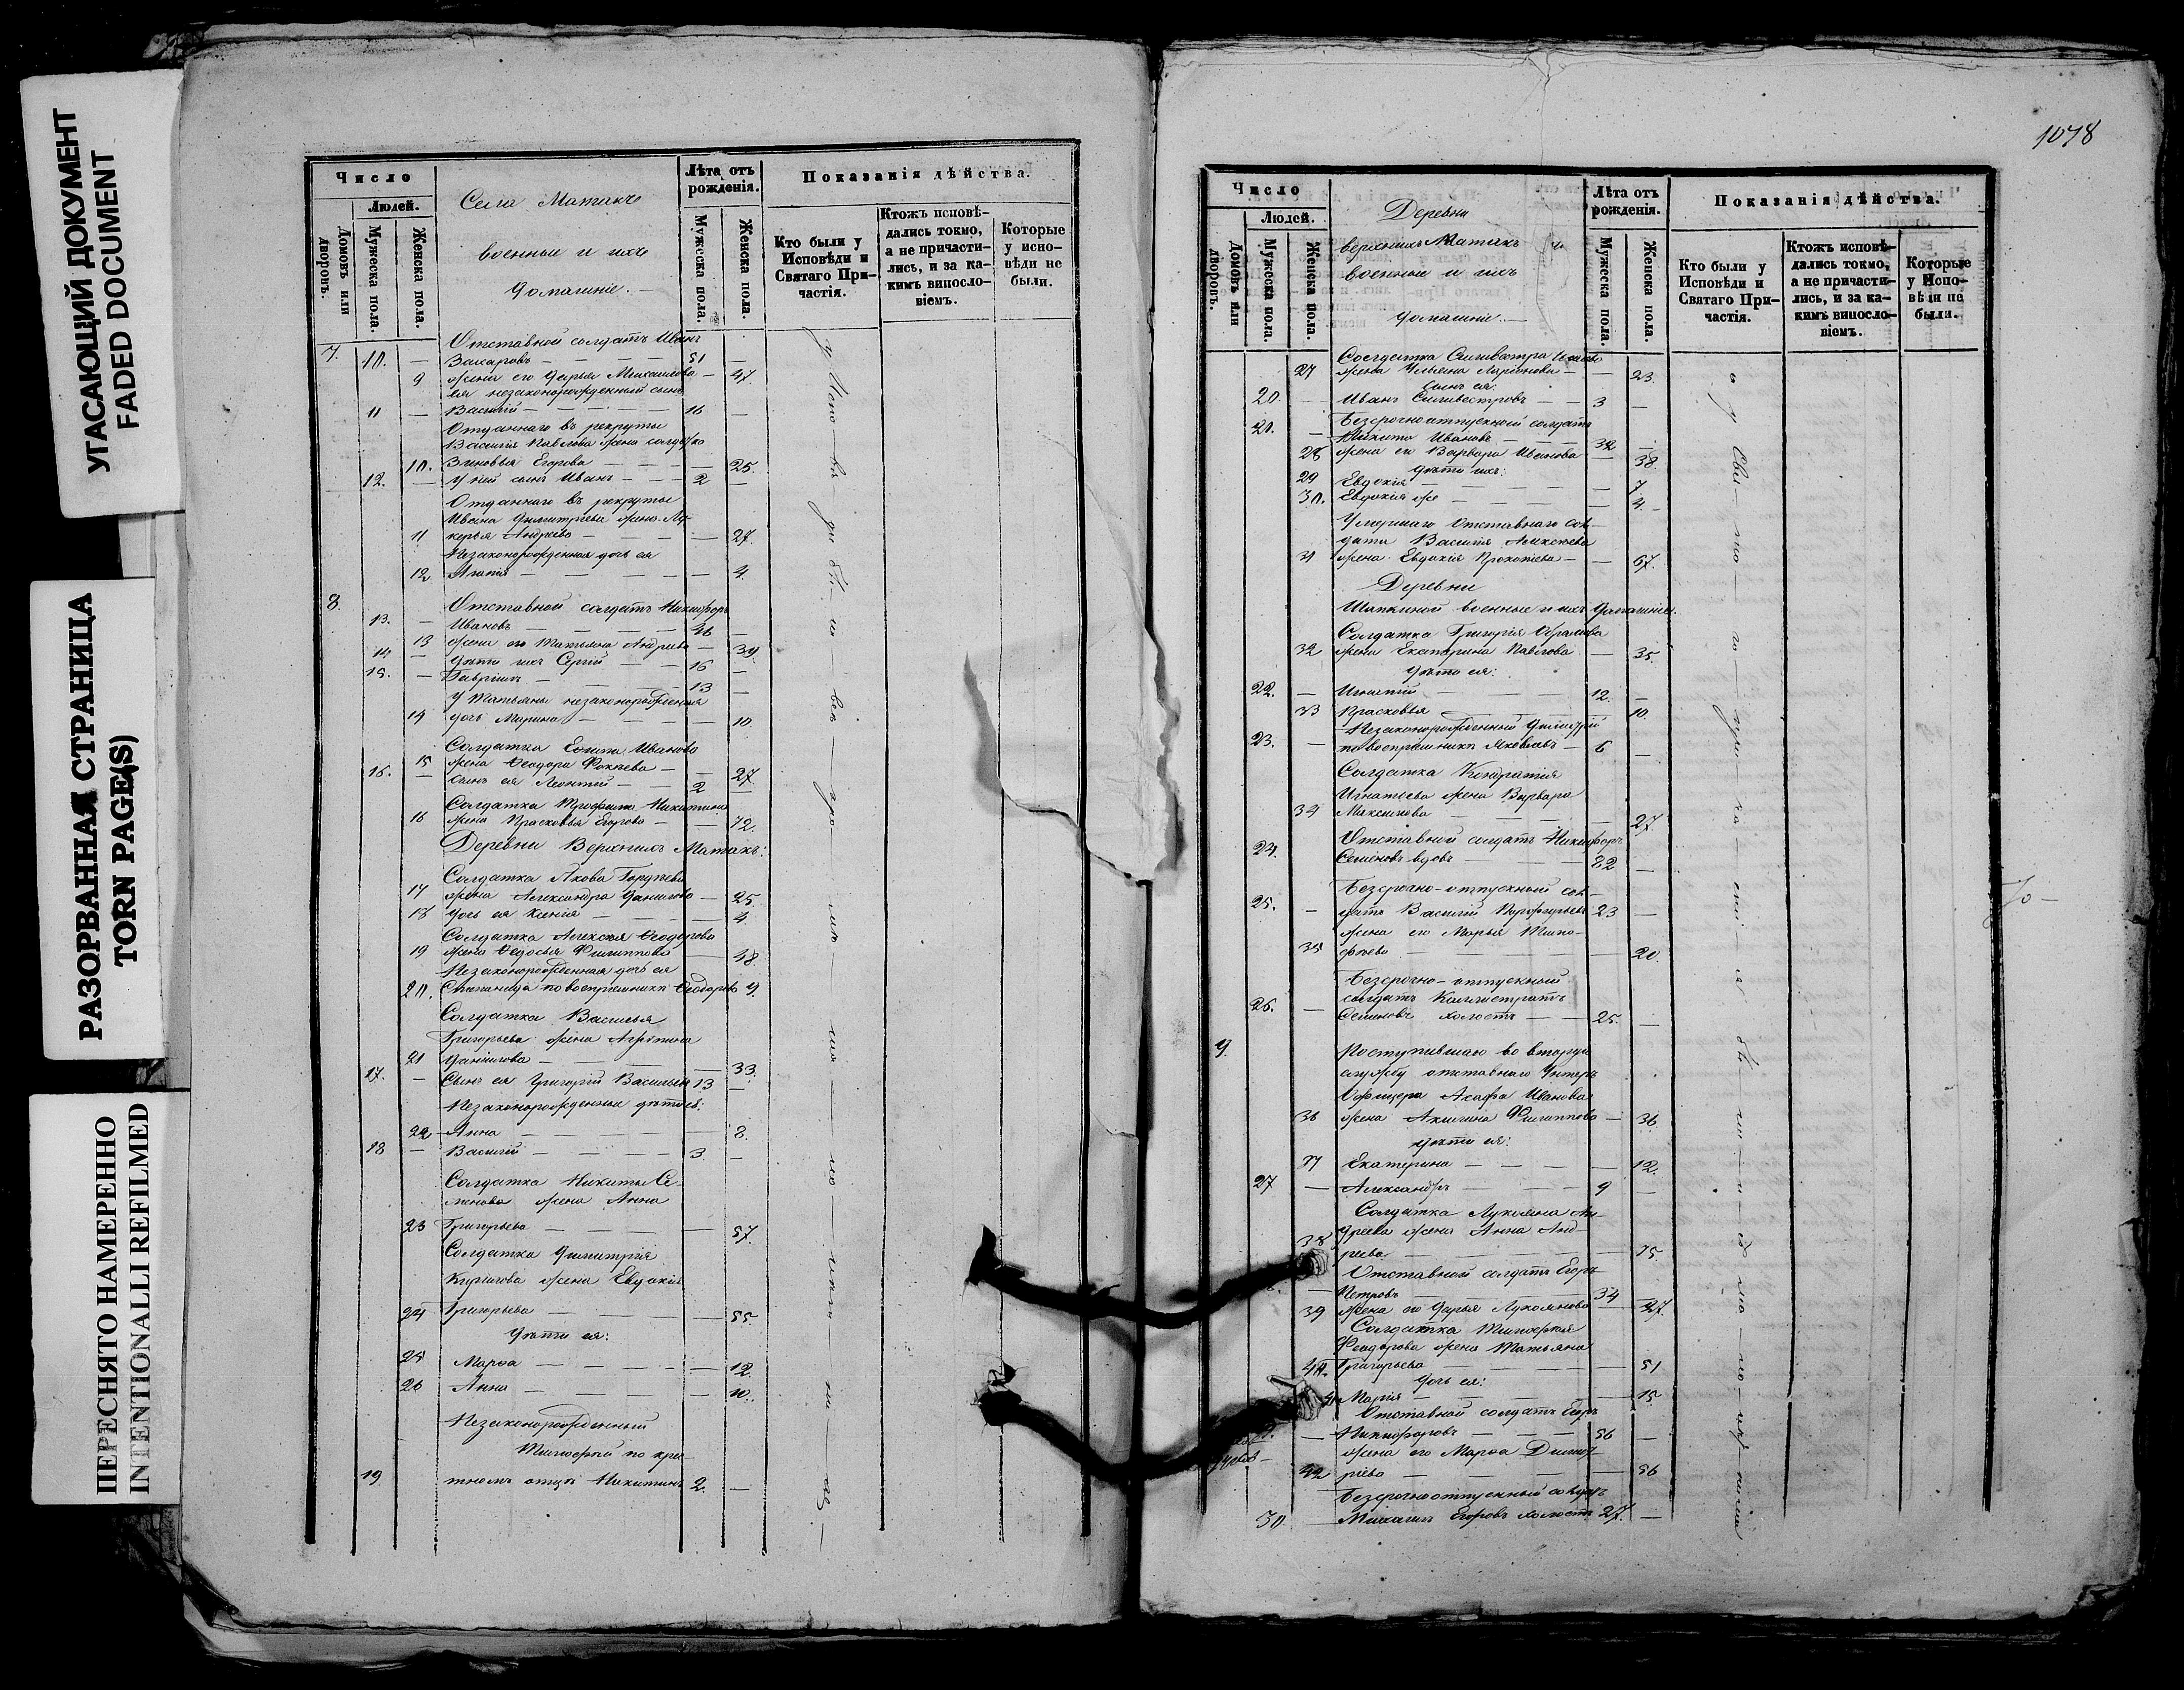 УГАСАЮЩИЙ ДОКУМЕНТ
FADED DOCUMENT
РАЗОРВАННАЯ СТРАНИЦА
TORN PAGE(S)
ПЕРЕСНЯТО НАМЕРЕННО
INTENTIONALLI REFILMED
Число
Людей.
Домовъ или дворовъ.
Мужеска пола.
Женска пола.
Села Матакъ
военные и ихъ
домашніе.
Лѣта отъ рожденія.
Мужеска пола.
Женска пола.
Показанія дѣйства.
Кто были у Исповѣди и Святаго Причастія.
Ктожъ исповѣдались токмо, а не причастились, и за какимъ винословіемъ.
Которые у исповѣди не были.
Отставной солдатъ Иванъ
7. 10. — Захаровъ — 51 —
9 жена его Дарья Михаилова — 47.
ея незаконорожденный сынъ
11 — Василій — 16 —
Отданнаго въ рекруты
Василія Павлова жена солдатка
10. Зиновья Егорова — 25.
12. — У ней сынъ Иванъ — 2 —
Отданнаго въ рекруты
Ивана Димитріева жена Лу-
11 керья Андреева — 27.
Незаконорожденная дочь ея
12 Агапія — 4.
8. Отставной солдатъ Никифоръ
13. — Ивановъ — 46 —
13 жена его Татьяна Андреева — 39
14 — дѣти ихъ Сергій — 16
15. — Гавріилъ — 13 —
У Татьяны незаконорожденная
14 дочь Марина — 10.
Солдатка Иванова
15 жена Ѳеодора Фокеева — 27
16. — сынъ ея Леонтій — 2 —
Солдатка Трофима Никитина
16 жена Прасковья Егорова — 72.
Деревни Верхнихъ Матакъ:
Солдатка Якова Гордѣева
17 жена Александра Данилова — 25.
18 дочь ея Ксенія — 4.
Солдатка Алексѣя Ѳеодорова
19 жена Ѳедосья Филиппова — 48.
Незаконорожденная дочь ея
20. Степанида по воспріемнику Ѳеодорова 9.
Солдатка Василья
Григорьева жена Агрипина
21 Данилова — 33.
17. — Сынъ ея Григорій Васильевъ 13 —
Незаконорожденные дѣти ея:
22 Анна — 8.
18 — Василій — 3. —
Солдатка Никиты Се-
менова жена Анна
23 Григорьева — 57.
Солдатка Димитрія
Кирилова жена Евдокія
24 Григорьева — 55
дѣти ея:
25 Марѳа — 12.
26 Анна — 10.
Незаконорожденный
Тимофей по кре-
19 стномъ отцѣ Никитинъ 2. —
1078
Число
Людей.
Домовъ или дворовъ.
Мужеска пола.
Женска пола.
Деревни
верхнихъ Матакъ
военные и ихъ
домашніе.
Лѣта отъ рожденія.
Мужеска пола.
Женска пола.
Показанія дѣйства.
Кто были у Исповѣди и Святаго Причастія.
Ктожъ исповѣдались токмо, а не причастились, и за какимъ винословіемъ.
Которые у Исповѣди не были.
Солдатка Силивестра
27 жена Ульяна Ларіонова — 23.
сынъ ея:
20. Иванъ Силивестровъ — 3 —
Безсрочноотпускной солдатъ
21. — Никита Ивановъ — 32 —
28 жена его Варвара Иванова — 38.
дѣти ихъ:
29 Евдокія — 7
30. Евдокія же — 4.
Умершаго отставнаго сол-
дата Василія Алексѣева
31 жена Евдокія Прокопіева — 67.
Деревни
Шапкиной военные и ихъ домашніе.
Солдатка Григорія Абрамова
32 жена Екатерина Павлова — 35.
дѣти ея:
22. — Игнатій — 12. —
33 Прасковья — 10.
Незаконорожденный Димитрій
23. — по воспріемнику Яковлевъ — 6 —
Солдатка Кондратія
Игнатьева жена Варвара
34 Максимова — 27.
Отставной солдатъ Никифоръ
24. Семеновъ вдовъ — 82 —
Безсрочно-отпускный сол-
25. — датъ Василій Порфирьевъ 23 —
жена его Марья Тимо-
35 фѣева — 20.
Безсрочно-отпускный
солдатъ Каллистратъ
26. — Семеновъ холостъ — 25. —
9. Поступившаго во вторую
службу отставнаго Унтеръ
Офицера Агафа Иванова
36 жена Акилина Филиппова — 36.
дѣти ея:
37 Екатерина — 12.
27 — Александръ — 9 —
Солдатка Лукьяна Ан-
дреева жена Анна Анд-
38 реева — 75.
Отставной солдатъ Егоръ
— Петровъ — 34 —
39 жена его Дарья Лукоянова — 27.
Солдатка Тимофея
Ѳеодорова жена Татьяна
40. Григорьева — 51
дочь ея:
41 Марія — 15
Отставной солдатъ Егоръ
— Никифоровъ — 56 —
жена его Марѳа Димит-
42 ріева — 56
Безсрочноотпускный солдатъ
30 Михаилъ Егоровъ холостъ 27. —